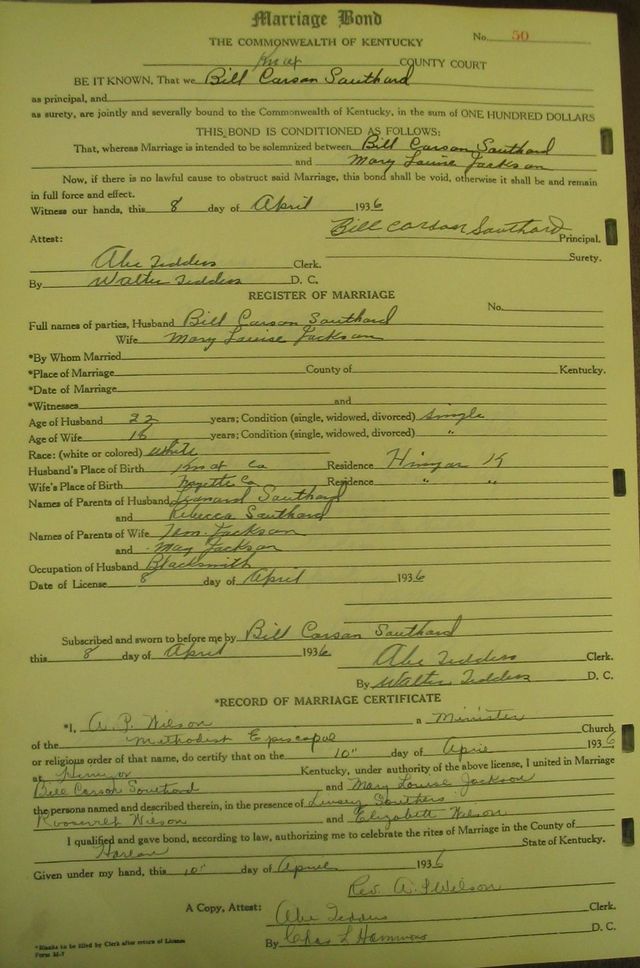 Marriage Bond
THE COMMONWEALTH OF KENTUCKY No. 50
Knox COUNTY COURT
BE IT KNOWN, That we Bill Carson Southard
as principal, and
as surety, are jointly and severally bound to the Commonwealth of Kentucky, in the sum of ONE HUNDRED DOLLARS
THIS BOND IS CONDITIONED AS FOLLOWS:
That, whereas Marriage is intended to be solemnized between Bill Carson Southard
and Mary Louise Jackson
Now, if there is no lawful cause to obstruct said Marriage, this bond shall be void, otherwise it shall be and remain
in full force and effect.
Witness our hands, this 8 day of April 1936
Bill Carson Southard Principal.
Attest:
Surety.
Abe Tedders Clerk.
By Walter Tedders D. C.
REGISTER OF MARRIAGE
No.
Full names of parties, Husband Bill Carson Southard
Wife Mary Louise Jackson
*By Whom Married
*Place of Marriage County of Kentucky.
*Date of Marriage
*Witnesses and
Age of Husband 22 years; Condition (single, widowed, divorced) Single
Age of Wife years; Condition (single, widowed, divorced) "
Race: (white or colored) White
Husband's Place of Birth Knox Co Residence Hinyar Ky
Wife's Place of Birth Residence " "
Names of Parents of Husband Leonard Southard
and Rebecca Southard
Names of Parents of Wife Jackson
and May Jackson
Occupation of Husband Blacksmith
Date of License 8 day of April 1936
Subscribed and sworn to before me by Bill Carson Southard
this 8 day of April 1936
Abe Tedders Clerk.
By Walter Tedders D. C.
*RECORD OF MARRIAGE CERTIFICATE
*I, A. P. Wilson a Minister
of the Methodist Episcopal Church
or religious order of that name, do certify that on the 10" day of April 1936
at Hinyar Kentucky, under authority of the above license, I united in Marriage
Bill Carson Southard and Mary Louise Jackson
the persons named and described therein, in the presence of Southers
Roosevelt Wilson and Elizabeth Wilson
I qualified and gave bond, according to law, authorizing me to celebrate the rites of Marriage in the County of
Harlan State of Kentucky.
Given under my hand, this 10" day of April 1936
Rev. A. P Wilson
A Copy, Attest: Abe Tedders Clerk.
By Chas L Hammons D. C.
*Blanks to be filled by Clerk after return of License
Form M-7